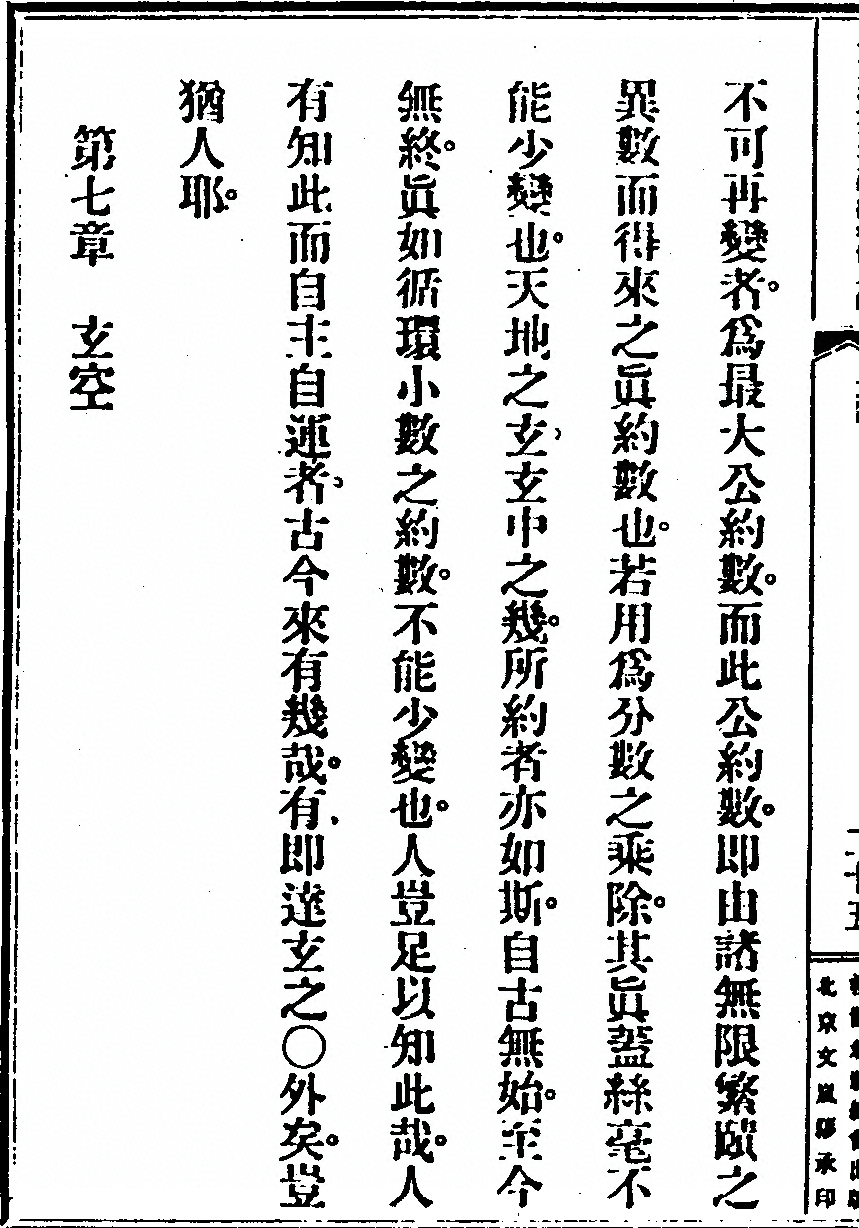 二十五
北京文嵐簃承印
不可再變者。爲最大公約數。而此公約數。即由諸無限繁賾之
異數而得來之眞約數也。若用爲分數之乘除。其眞蓋絲毫不
能少變也。天地之玄、玄中之幾。所約者亦如斯。自古無始。至今
無終。眞如循環小數之約數。不能少變也。人豈足以知此哉。人
有知此而自主自運者、古今來有幾哉。有、即達玄之〇外矣。豈
猶人耶。
第七章　玄空